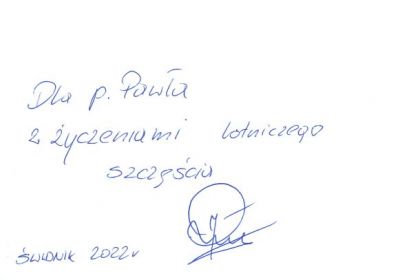 Dla p. Pawła
z życzeniami lotniczego
szczęścia
Świdnik 2022r